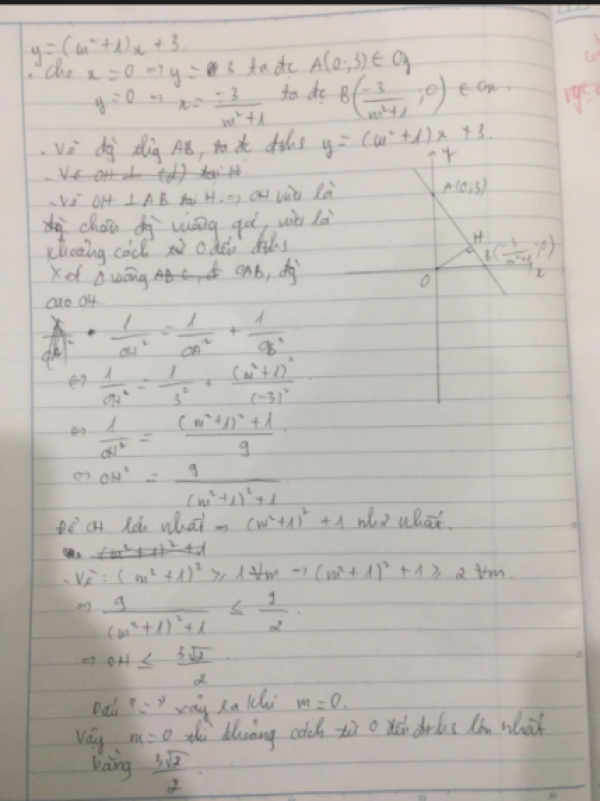 y = (m² + 1)x + 3
. Cho x = 0 → y = 3 ta đc A(0;3) ∈ Oy
y = 0 → x = -3/(m²+1) ta đc B(-3/(m²+1); 0) ∈ Ox
. Vẽ đg thg AB, ta đc đths y = (m² + 1)x + 3
- Vẽ OH ⊥ (d) tại H
- Vẽ OH ⊥ AB tại H → OH vừa là
khoảng cách từ O đến đths
Xét Δ vuông OAB, đg
cao OH
y
A(0;3)
H
B(-3/(m²+1); 0)
O
1/OH² = 1/OA² + 1/OB²
⇔ 1/OH² = 1/3² + (m²+1)²/(-3)²
⇔ 1/OH² = ((m²+1)² + 1)/9
⇔ OH² = 9/((m²+1)² + 1)
Để OH lớn nhất → (m²+1)² + 1 nhỏ nhất.
(m²+1)² + 1
. Vì: (m²+1)² ≥ 1 ∀m → (m²+1)² + 1 ≥ 2 ∀m
⇒ 9/((m²+1)² + 1) ≤ 9/2.
⇒ OH ≤ 3√2/2
Dấu "=" xảy ra khi m = 0.
Vậy m = 0 thì khoảng cách từ O đến đths lớn nhất
bằng 3√2/2.